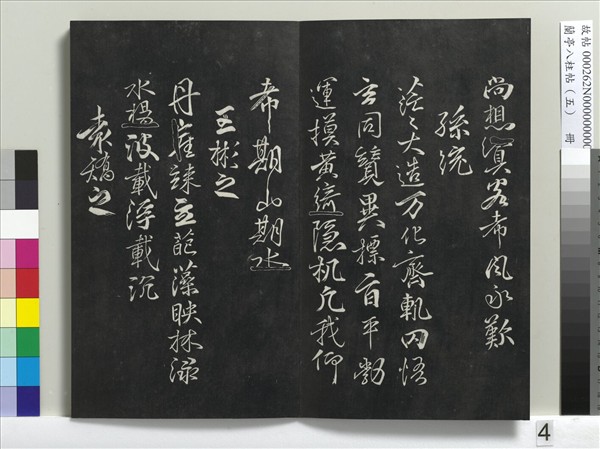 故帖 000262N000000000
蘭亭八柱帖（五） 冊
尚想冥客希風永歎
孫統
茫〻大造万化齊軌罔悟
玄同競異標旨平勃
運摸黃綺隱机凡我仰
希期山期水
王彬之
丹崖竦立葩藻映林淥
水揚波載浮載沉
袁嶠之
4